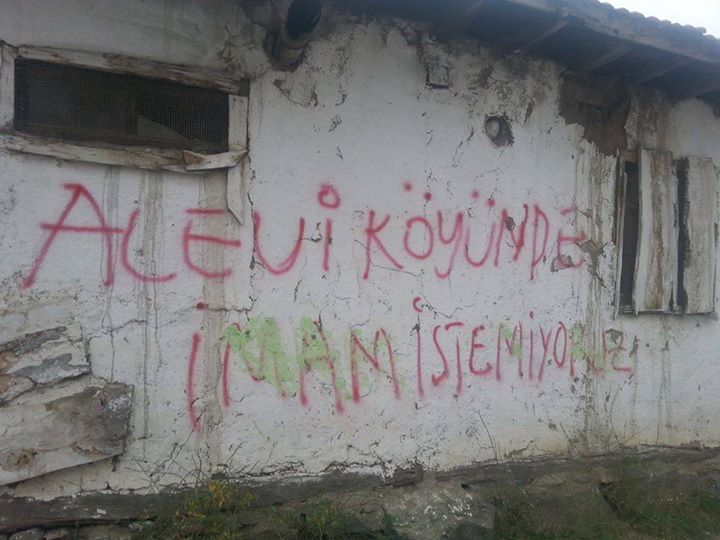 ALEVİ KÖYÜNDE
İMAM İSTEMİYORUZ